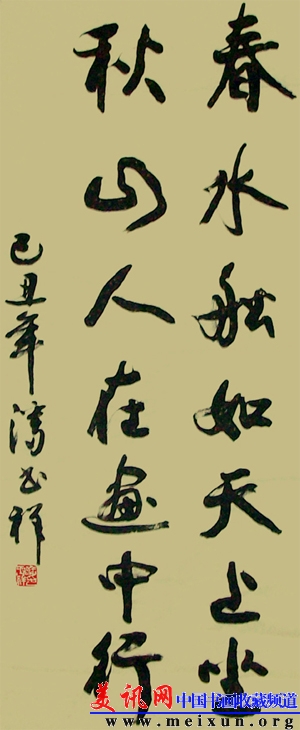 春水船如天上坐
秋山人在画中行
己丑年
美讯网 中国书画收藏频道
www.meixun.org